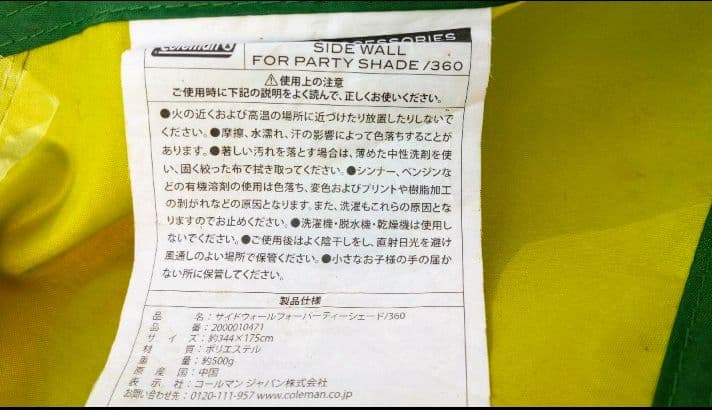 Coleman
ACCESSORIES
SIDE WALL
FOR PARTY SHADE /360
⚠使用上の注意
ご使用時に下記の説明をよく読んで、正しくお使いください。
●火の近くおよび高温の場所に近づけたり放置したりしないで
ください。●摩擦、水濡れ、汗の影響によって色落ちすることが
あります。●著しい汚れを落とす場合は、薄めた中性洗剤を使
い、固く絞った布で拭き取ってください。●シンナー、ベンジンな
どの有機溶剤の使用は色落ち、変色およびプリントや樹脂加工
の剥がれなどの原因となります。また、洗濯もこれらの原因とな
りますのでお止めください。●洗濯機・脱水機・乾燥機は使用し
ないでください。●ご使用後はよく陰干しをし、直射日光を避け
風通しのよい場所で保管ください。●小さなお子様の手の届か
ない所に保管してください。
製品仕様
品名:サイドウォールフォーパーティーシェード/360
品番:2000010471
サイズ:約344×175cm
材質:ポリエステル
重量:約500g
原産国:中国
表示:コールマン ジャパン株式会社
お問い合わせ先:0120-111-957 www.coleman.co.jp